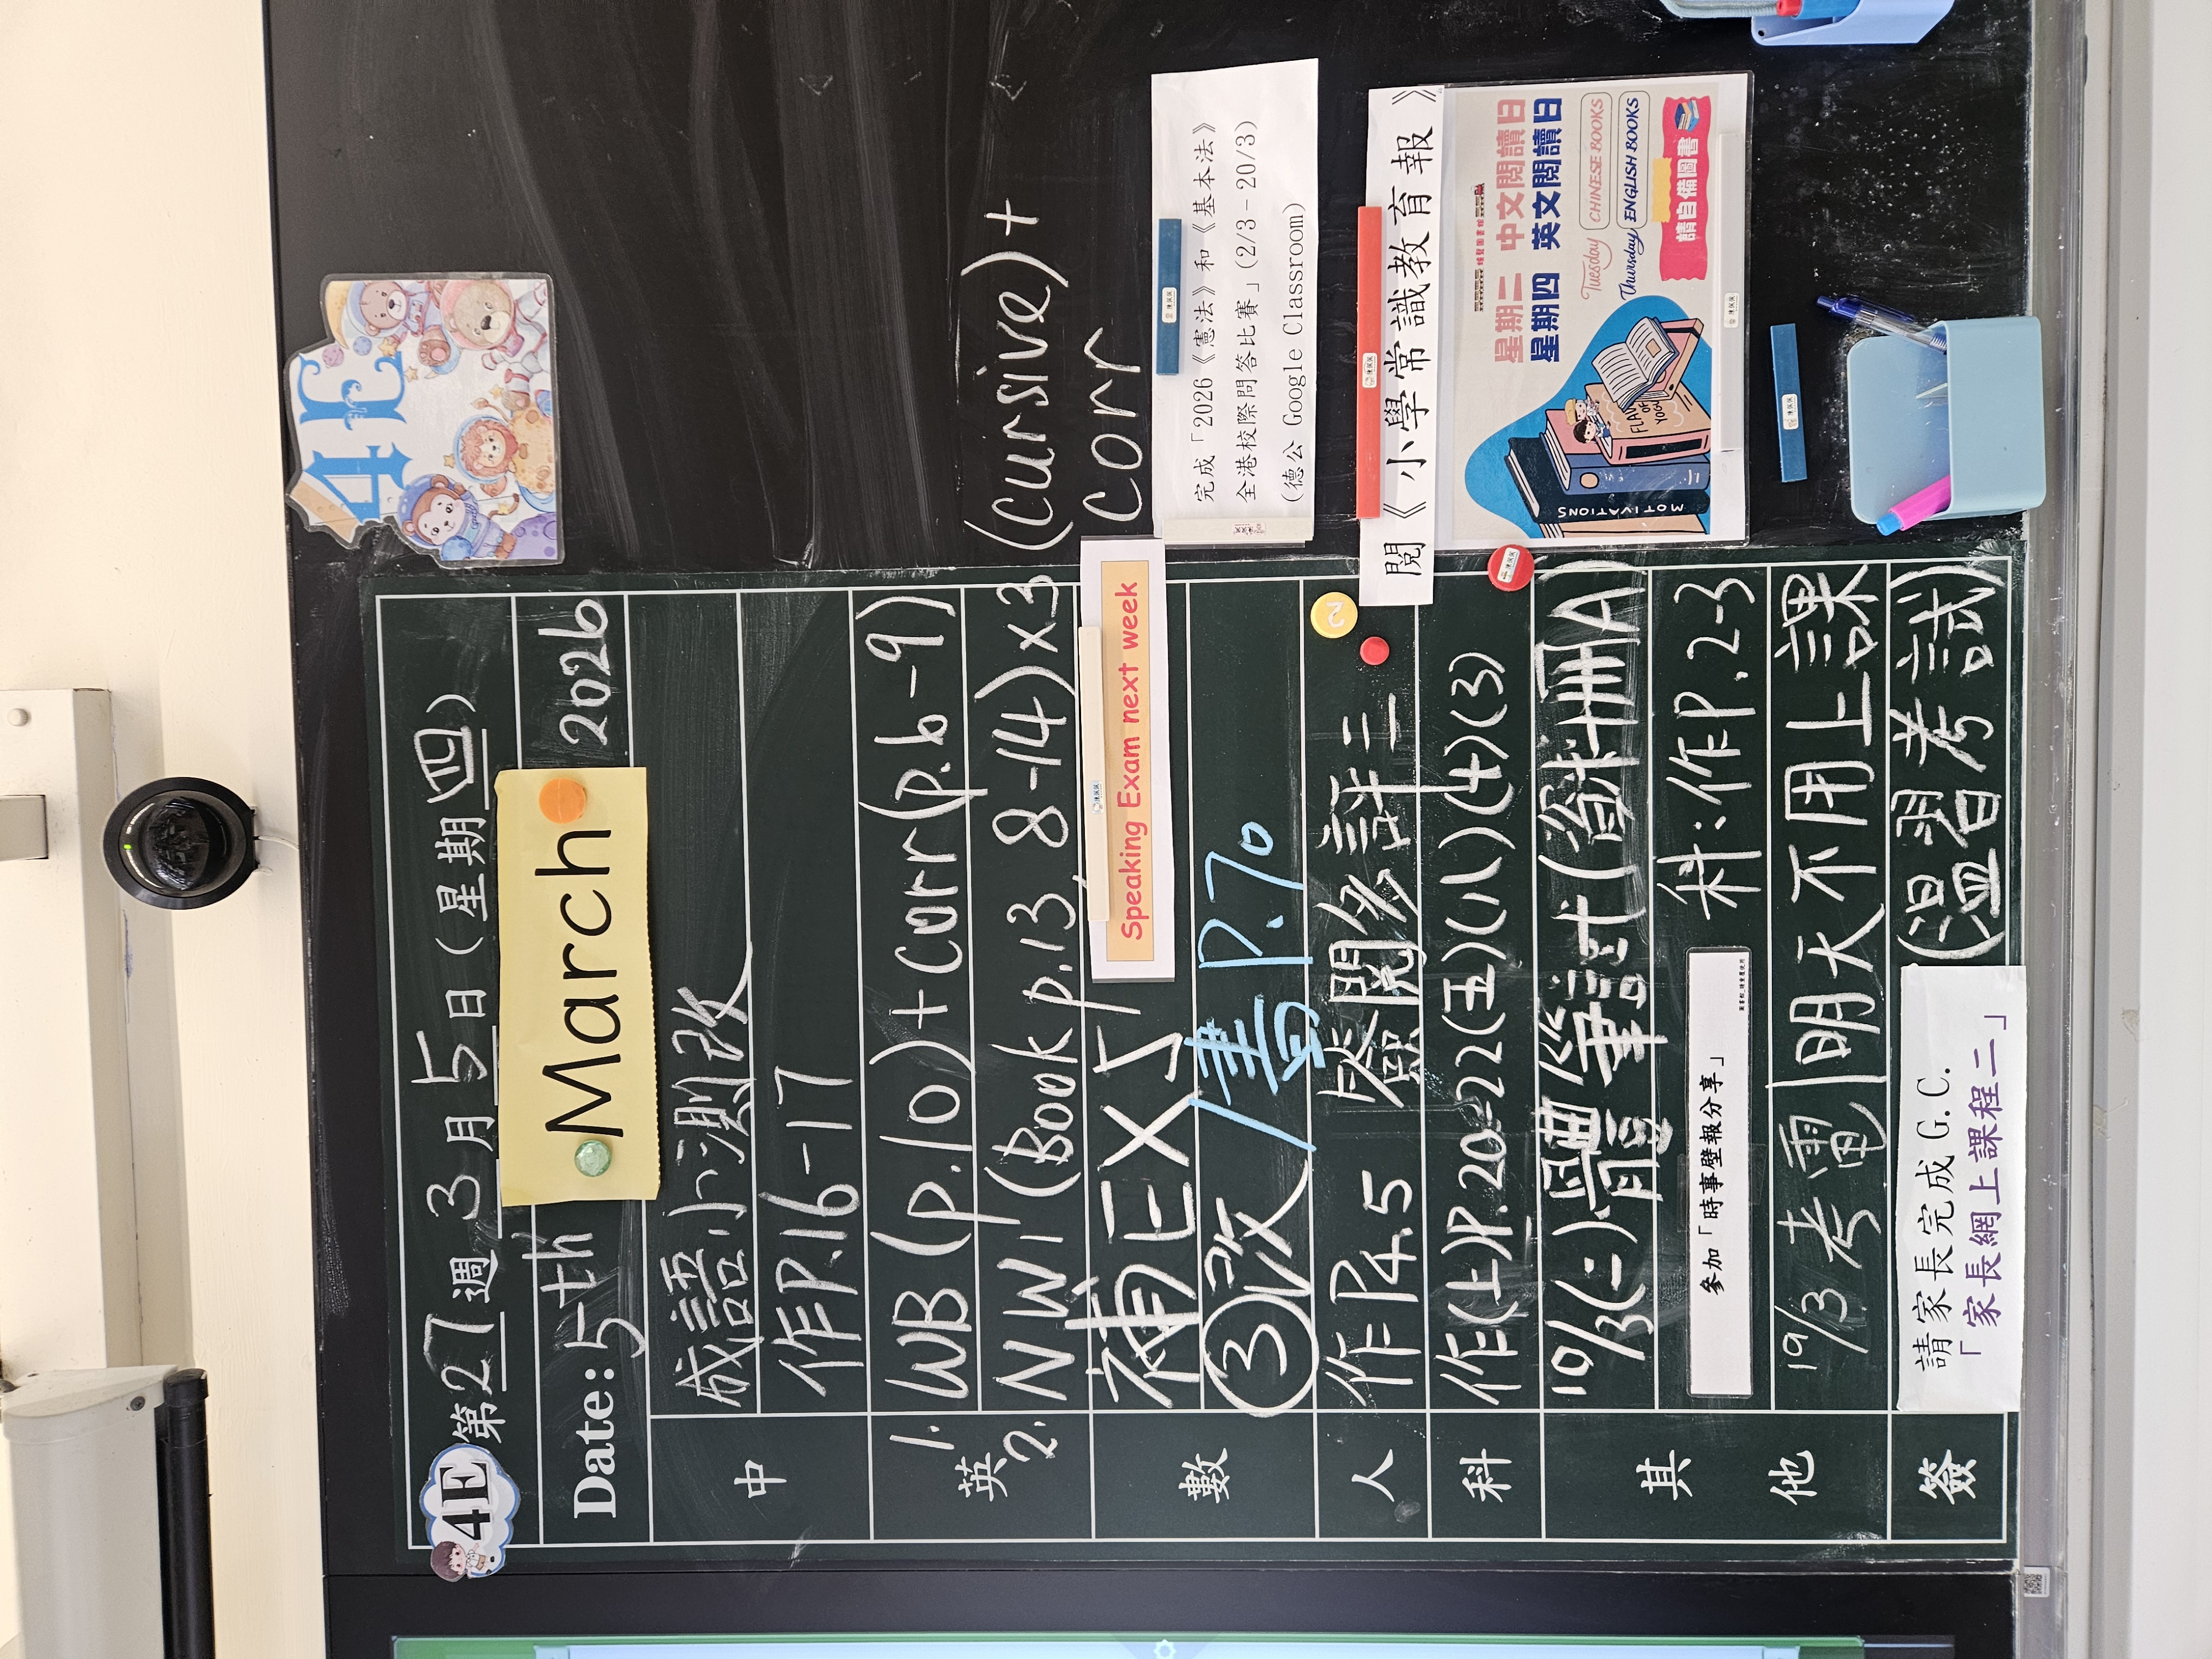 4E
4E 第27週 3月5日(星期四)
Date: 5th March 2026
中
成語小測改
作P.16-17
英
1. WB (p.10) + corr (p.6-9)
2. NW1 (Book p.13, 8-14)x3 (cursive)+
corr
Speaking Exam next week
數
補EX5
③改/書P.70
人
作P4.5 啓閱多評三
科
作(上)P.20-22(五)(八)(4)(3)
其他
10/3(二)體 筆試(資料冊A)
參加「時事壁報分享」
科:作P.2-3
19/3考電|明天不用上課
簽
請家長完成 G.C.
「家長網上課程二」
(溫習考試)
完成「2026《憲法》和《基本法》
全港校際問答比賽」(2/3-20/3)
(德公 Google Classroom)
閱《小學常識教育報》
星期二 中文閱讀日
星期四 英文閱讀日
Tuesday CHINESE BOOKS
Thursday ENGLISH BOOKS
請自備圖書
MOTIVATIONS